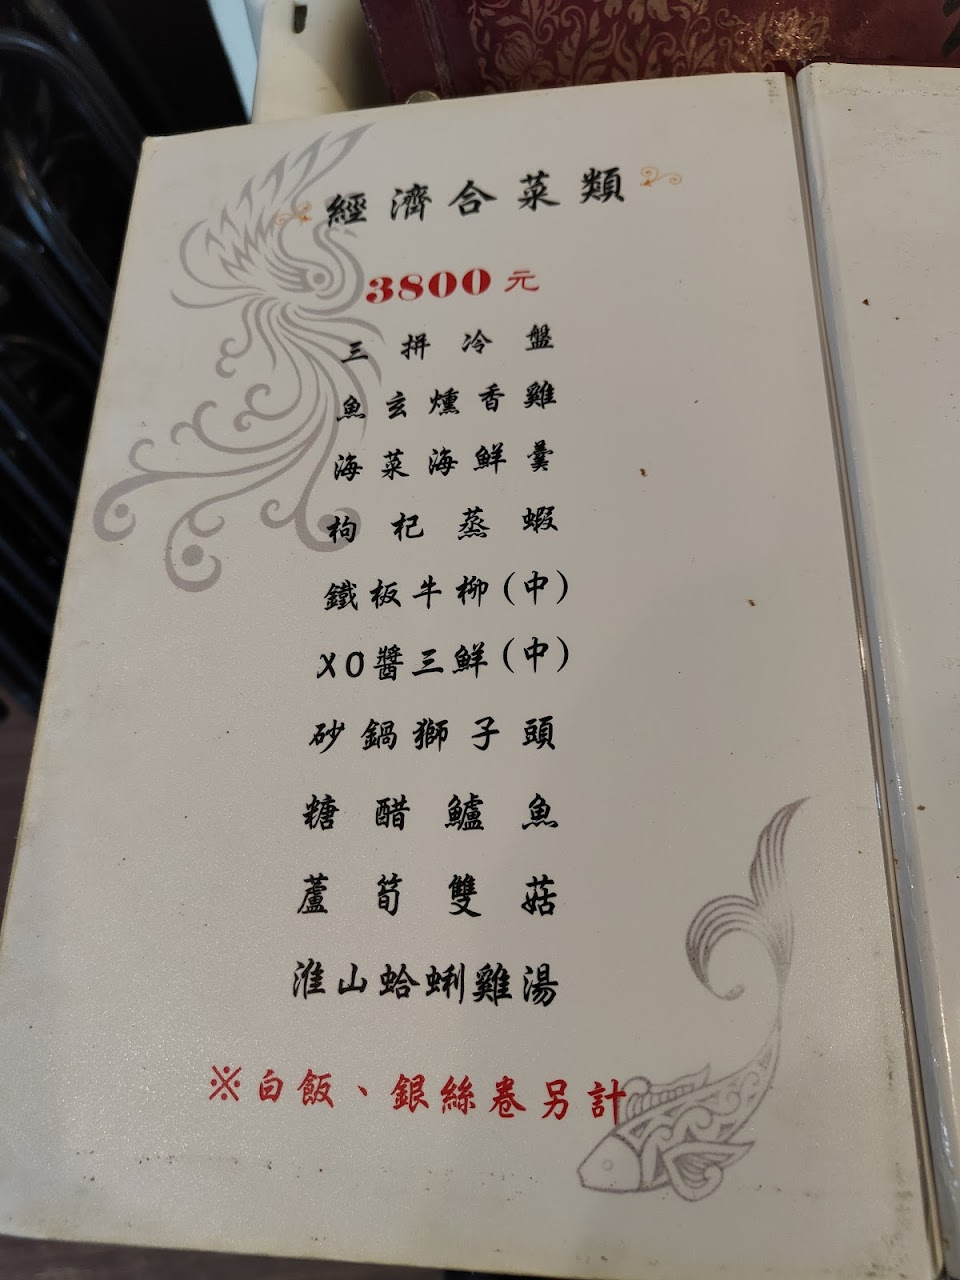 經濟合菜類
3800元
三拼冷盤
魚玄燻香雞
海菜海鮮羹
枸杞蒸蝦
鐵板牛柳(中)
XO醬三鮮(中)
砂鍋獅子頭
糖醋鱸魚
蘆筍雙菇
淮山蛤蜊雞湯
※白飯、銀絲卷另計